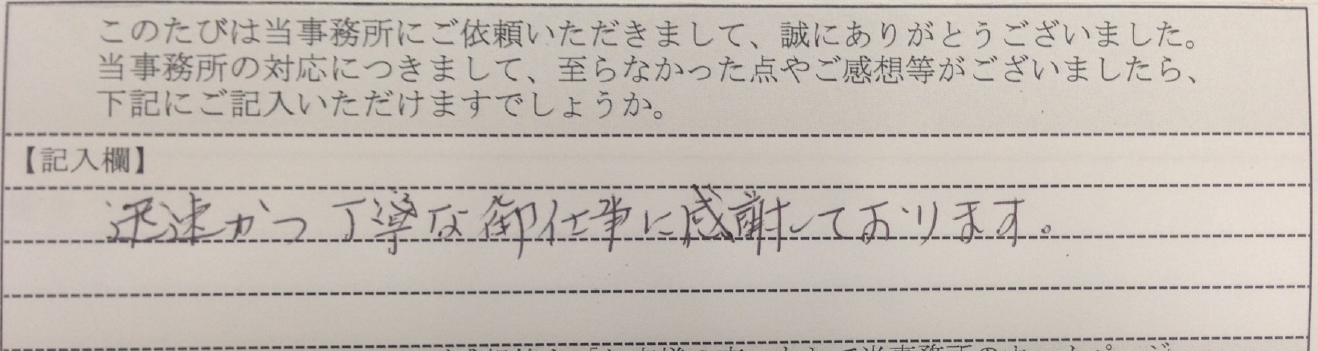 このたびは当事務所にご依頼いただきまして、誠にありがとうございました。
当事務所の対応につきまして、至らなかった点やご感想等がございましたら、
下記にご記入いただけますでしょうか。
【記入欄】
迅速かつ丁寧な御仕事に感謝しております。